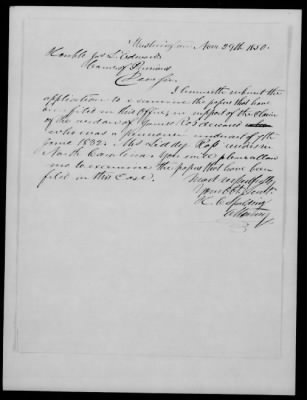 Washington Nov 29th 1850.
Honble Jas L. Edwards
Com of Pensions
Dear Sir
I herewith submit the
application to examine the papers that have
been filed in this Office, in support of the claim
of the widow of James Ross deceased
who was a Pensioner under act of 7th
June 1832. Mrs Liddy Ross resides in
North Carolina. You will please allow
me to examine the papers that have been
filed in this Case.
Most respectfully
Your Obt Servt
H. C. Spalding